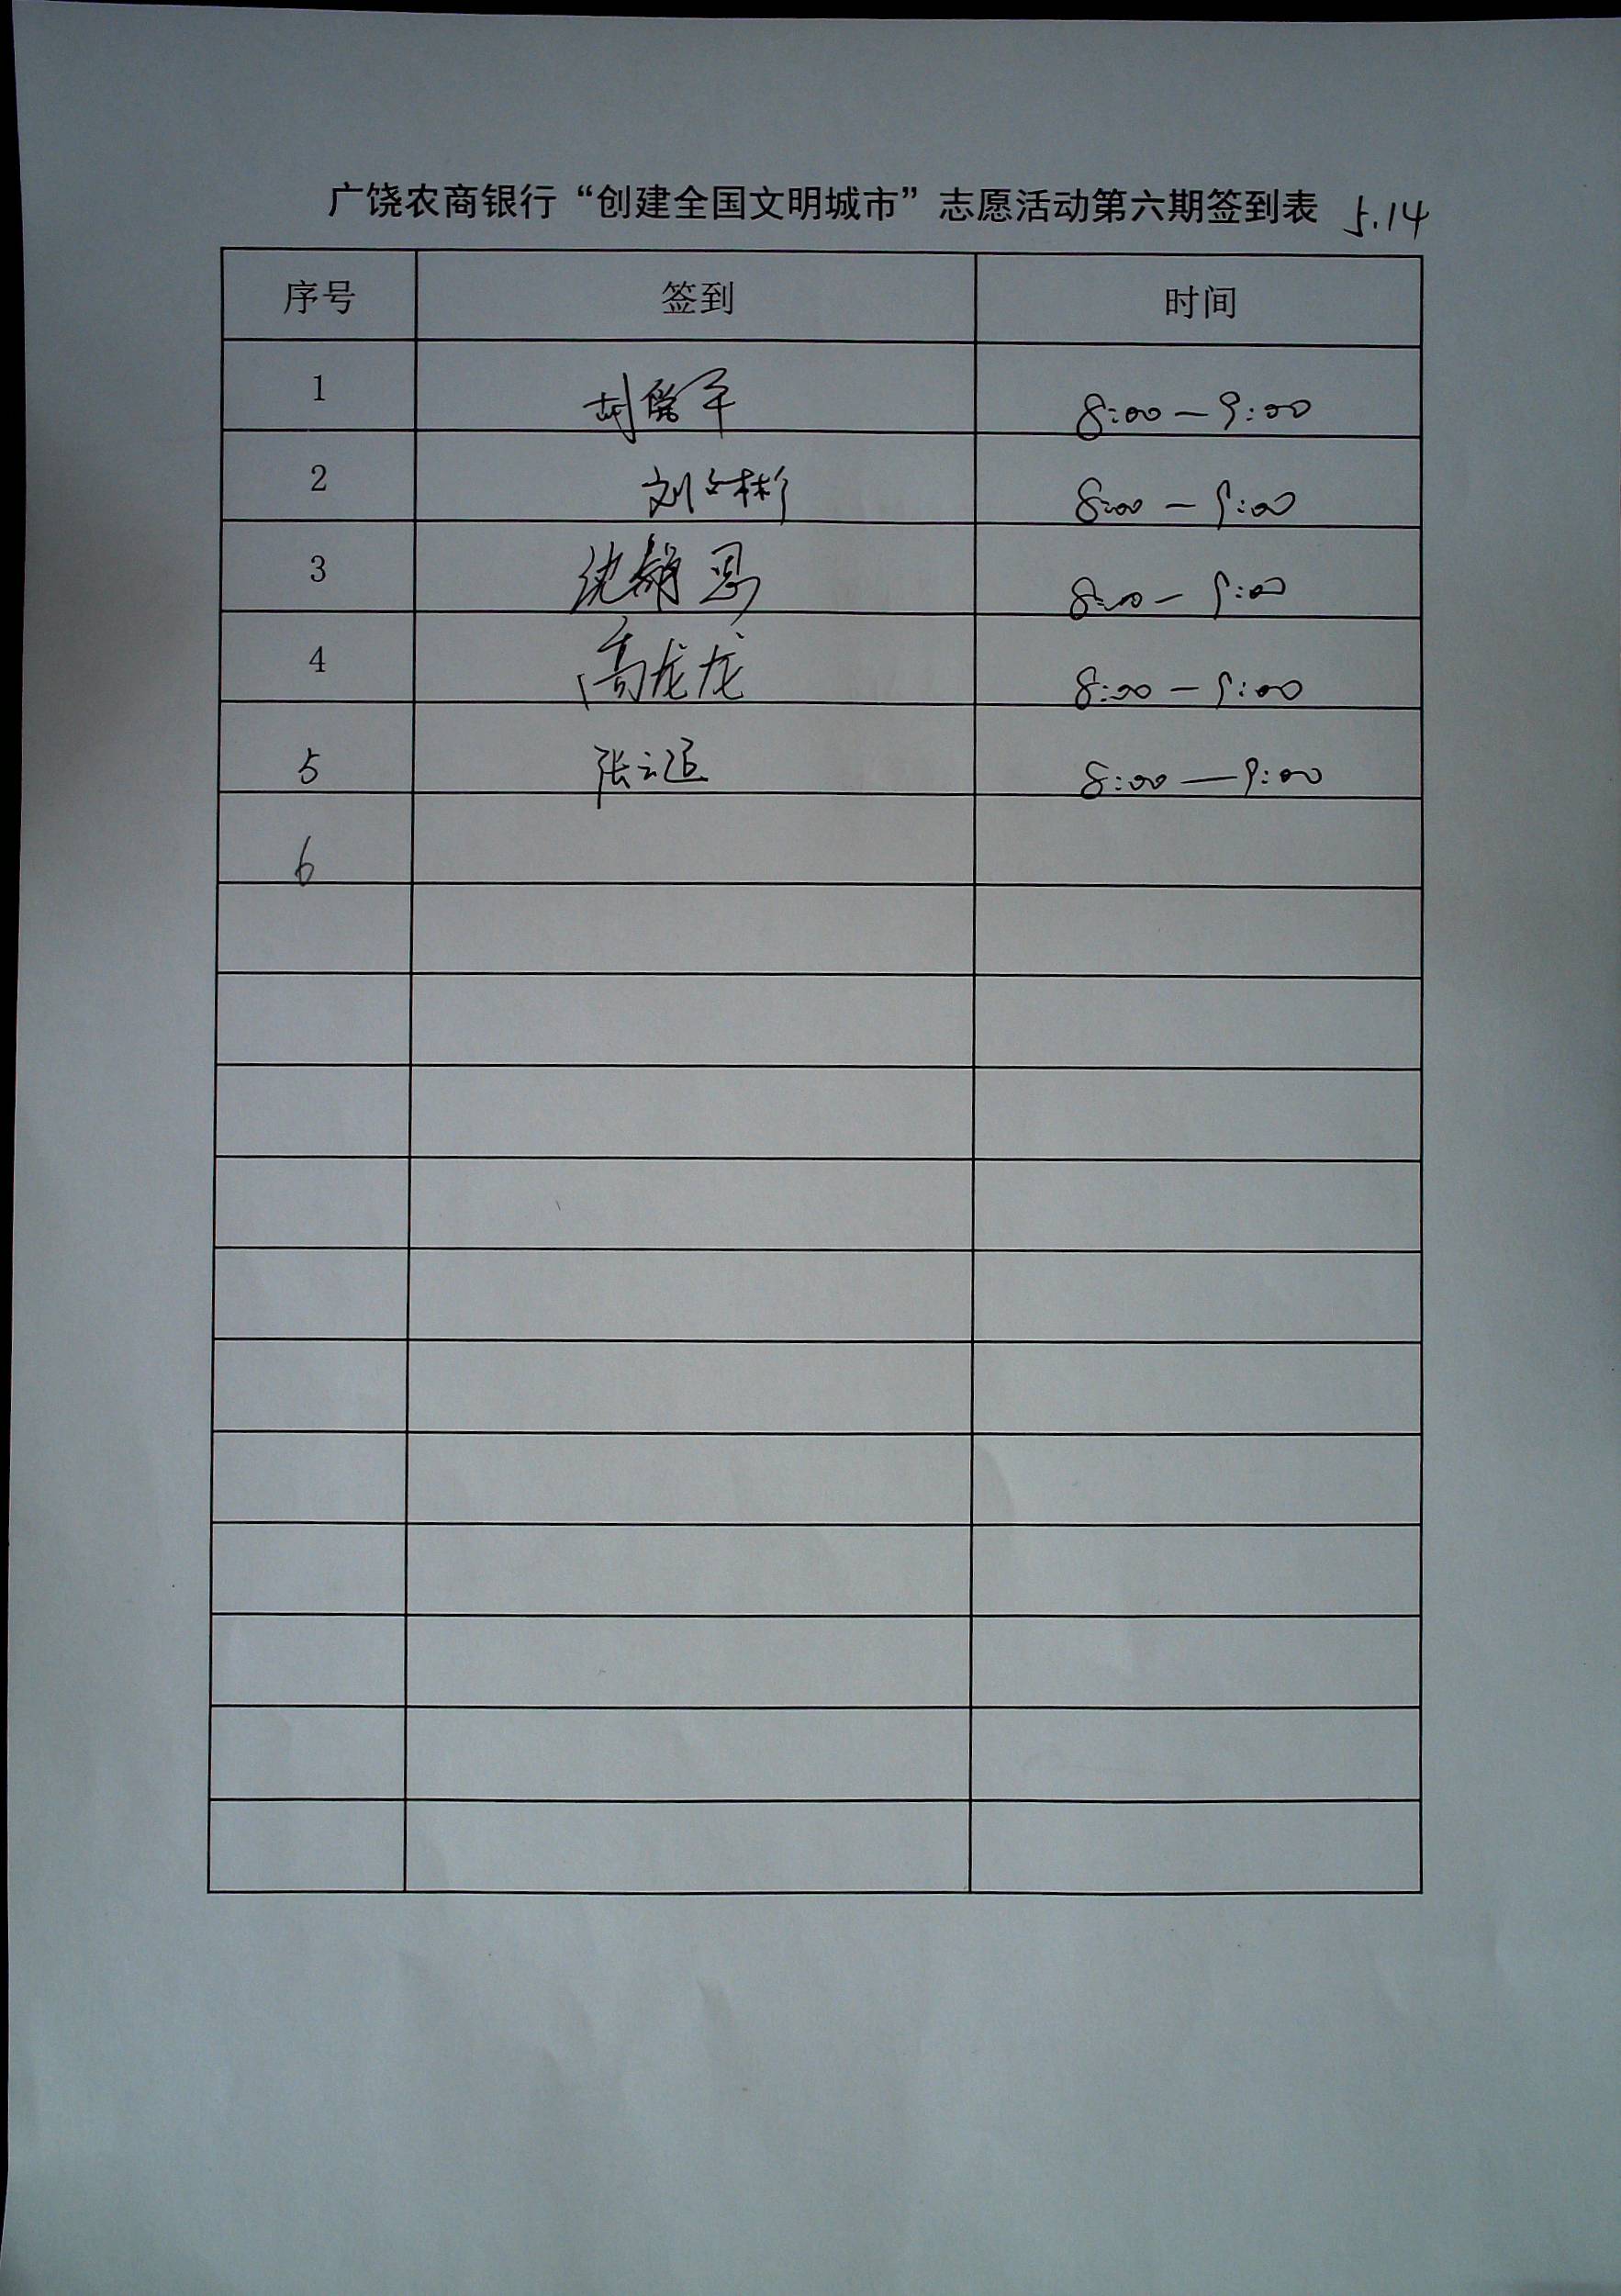 广饶农商银行“创建全国文明城市”志愿活动第六期签到表 5.14
序号 签到 时间
1 胡 军 8:00—9:00
2 刘文彬 8:00—9:00
3 沈静恩 8:00—9:00
4 高龙龙 8:00—9:00
5 张云廷 8:00—9:00
6